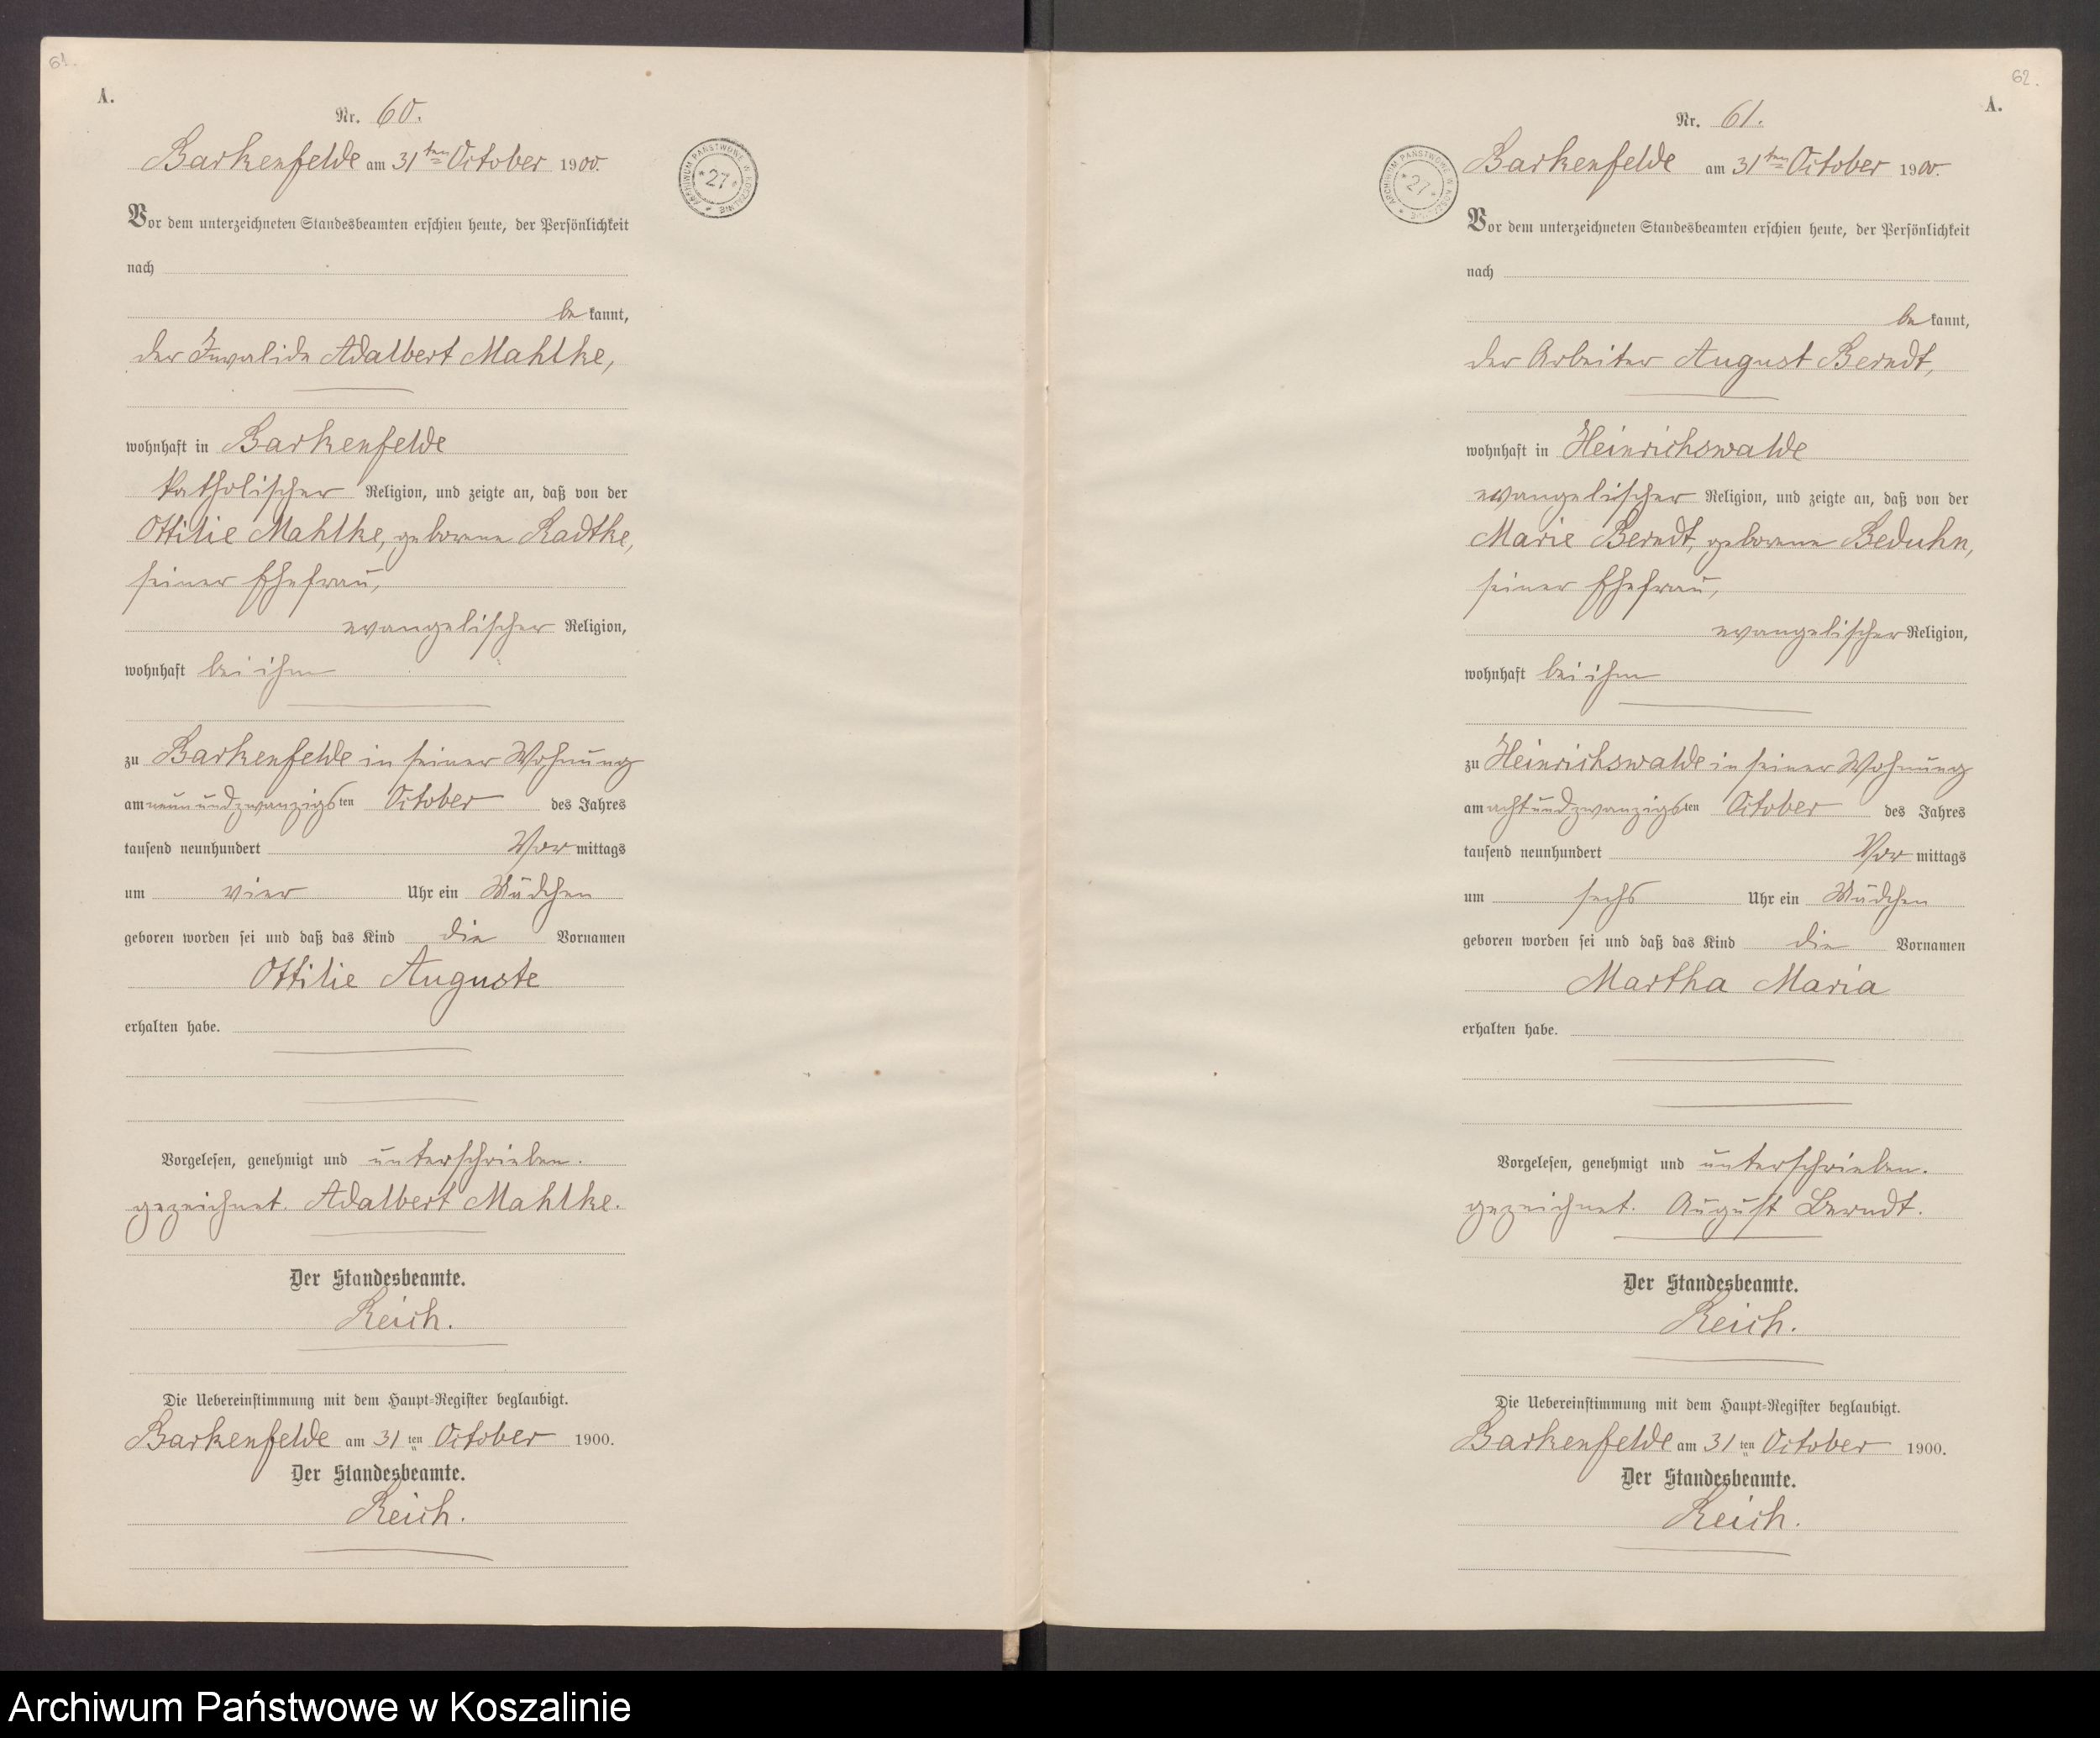 61.
A.
Nr. 60.
Barkenfelde am 31ten October 1900.
Vor dem unterzeichneten Standesbeamten erschien heute, der Persönlichkeit
nach
be kannt,
der Invalide Adalbert Mahlke,
wohnhaft in Barkenfelde
katholischer Religion, und zeigte an, daß von der
Ottilie Mahlke, geborene Radtke,
seiner Ehefrau,
evangelischer Religion,
wohnhaft bei ihm
zu Barkenfelde in seiner Wohnung
am neunundzwanzigsten October des Jahres
tausend neunhundert Vor mittags
um vier Uhr ein Mädchen
geboren worden sei und daß das Kind die Vornamen
Ottilie Auguste
erhalten habe.
Vorgelesen, genehmigt und unterschrieben.
gezeichnet. Adalbert Mahlke.
Der Standesbeamte.
Reich.
Die Uebereinstimmung mit dem Haupt-Register beglaubigt.
Barkenfelde am 31 ten October 1900.
Der Standesbeamte.
Reich.
ARCHIWUM PAŃSTWOWE W KOSZALINIE
* 27 *
62.
A.
Nr. 61.
ARCHIWUM PAŃSTWOWE W KOSZALINIE
* 27 *
Barkenfelde am 31ten October 1900.
Vor dem unterzeichneten Standesbeamten erschien heute, der Persönlichkeit
nach
be kannt,
der Arbeiter August Berndt,
wohnhaft in Heinrichswalde
evangelischer Religion, und zeigte an, daß von der
Marie Berndt, geborene Beduhn,
seiner Ehefrau,
evangelischer Religion,
wohnhaft bei ihm
zu Heinrichswalde in seiner Wohnung
am achtundzwanzigsten October des Jahres
tausend neunhundert Vor mittags
um sechs Uhr ein Mädchen
geboren worden sei und daß das Kind die Vornamen
Martha Maria
erhalten habe.
Vorgelesen, genehmigt und unterschrieben.
gezeichnet. August Berndt.
Der Standesbeamte.
Reich.
Die Uebereinstimmung mit dem Haupt-Register beglaubigt.
Barkenfelde am 31 ten October 1900.
Der Standesbeamte.
Reich.
Archiwum Państwowe w Koszalinie